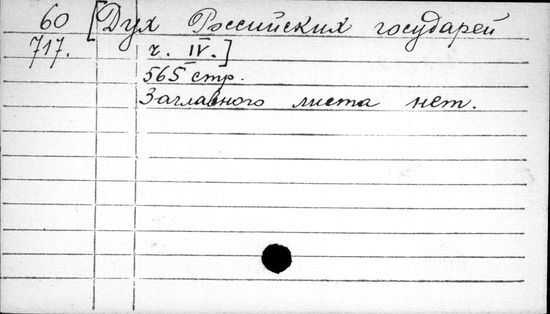 60 [Дух Российских государей
717. ч. IV.]
565 стр.
Заглавного листа нет.